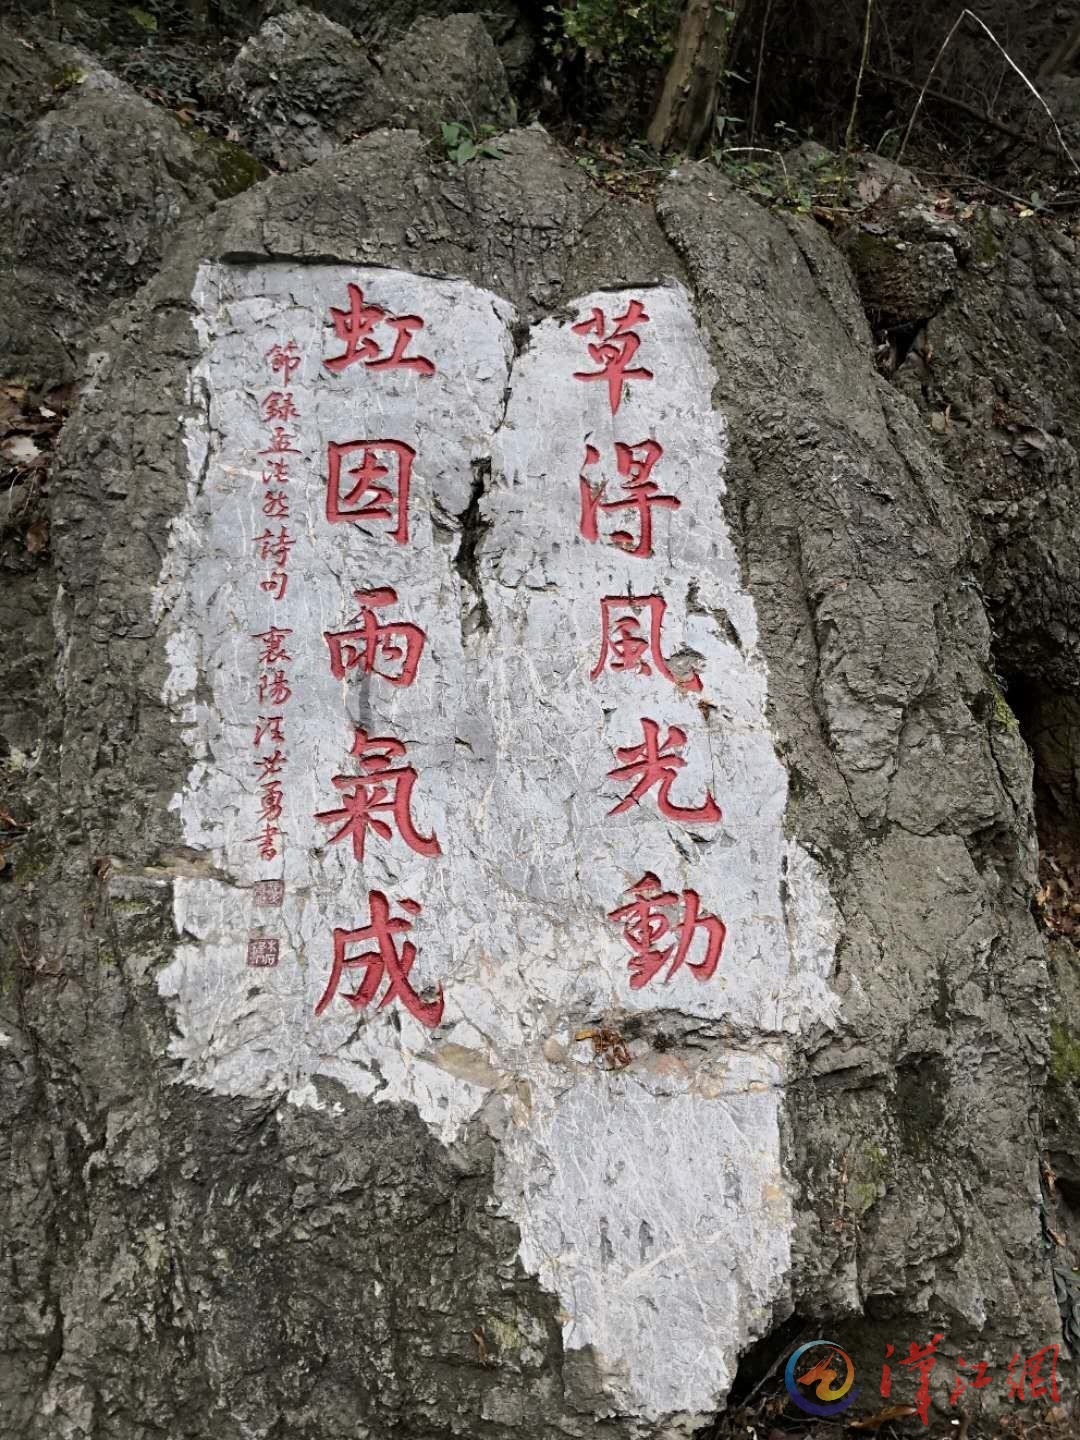 草得風光動
虹因雨氣成
節録孟浩然詩句 襄陽汪世勇書
漢江網